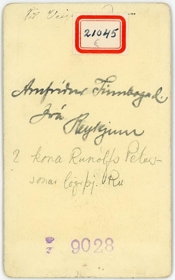 21045
Arnfríður Finnbogad.
frá
Reykjum
2 kona Runólfs Peter-
sonar lögrþj. Rv
9028